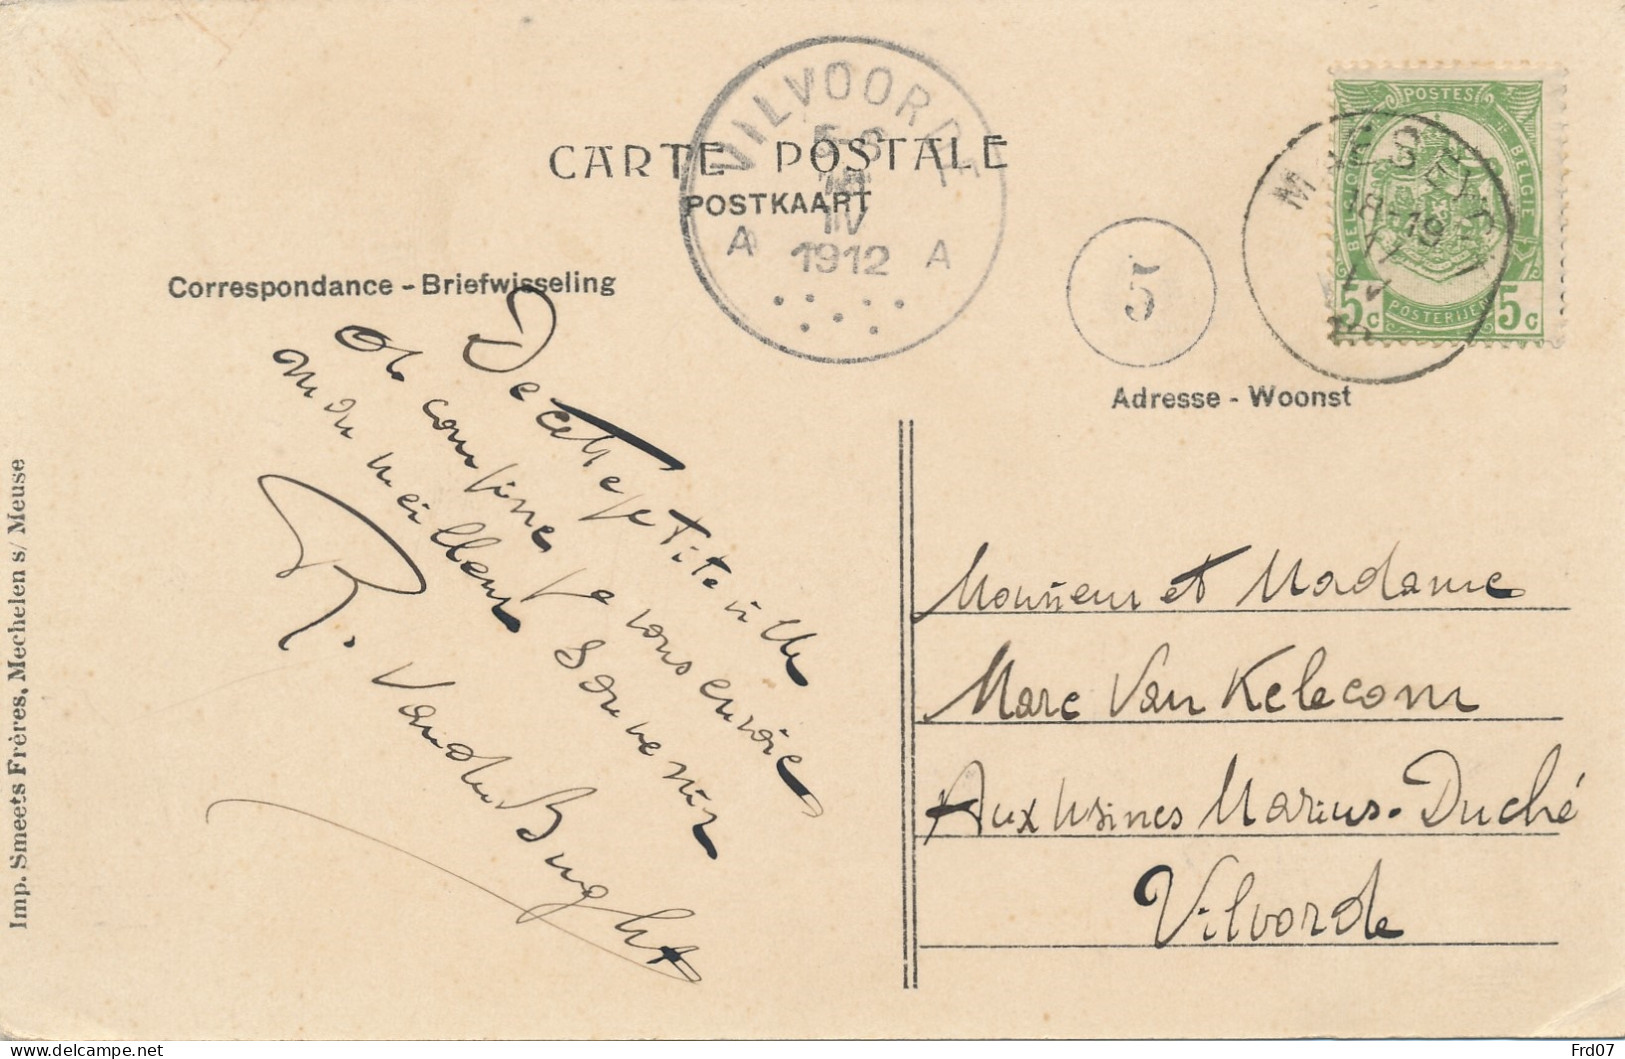 CARTE POSTALE
POSTKAART
VILVOORDE
5-6
IV
1912
A A
5
MAESEYCK
18-19
IV
POSTES
BELGIQUE BELGIE
5c POSTERIJEN 5c
Correspondance - Briefwisseling
Adresse - Woonst
De cette petite ville
où confine, je vous envoie
mon meilleur souvenir
R. Vander Bught
Monsieur et Madame
Marc Van Kelecom
Aux Usines Marius-Duché
Vilvorde
Imp. Smeets Frères, Mechelen s/ Meuse
delcampe.net
Frd07